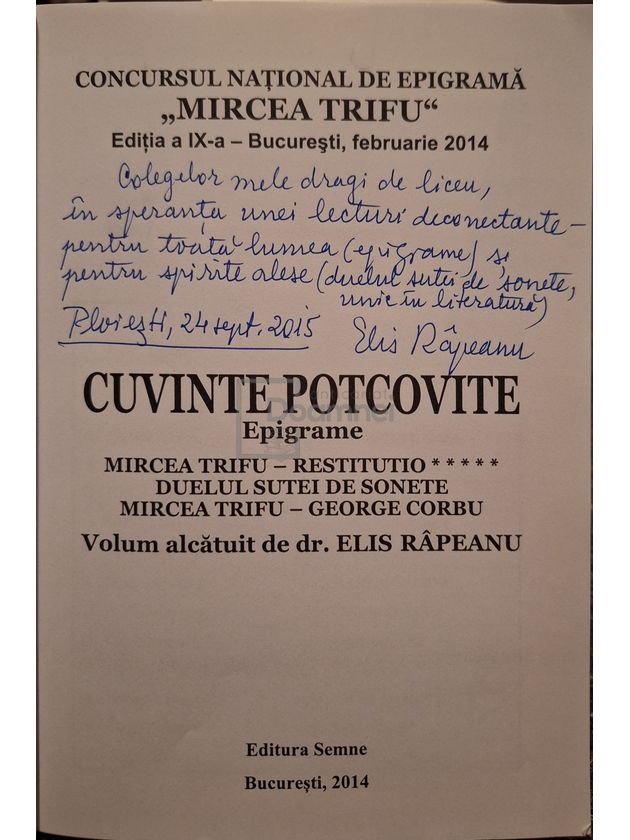 CONCURSUL NAȚIONAL DE EPIGRAMĂ
„MIRCEA TRIFU“
Ediția a IX-a – București, februarie 2014
Colegelor mele dragi de liceu,
în speranța unei lecturi deconectante –
pentru toată lumea (epigrame) și
pentru spirite alese (duelul sutei de sonete,
unic în literatură)
Ploiești, 24 sept. 2015 Elis Râpeanu
CUVINTE POTCOVITE
Epigrame
MIRCEA TRIFU – RESTITUTIO * * * * *
DUELUL SUTEI DE SONETE
MIRCEA TRIFU – GEORGE CORBU
Volum alcătuit de dr. ELIS RÂPEANU
Editura Semne
București, 2014